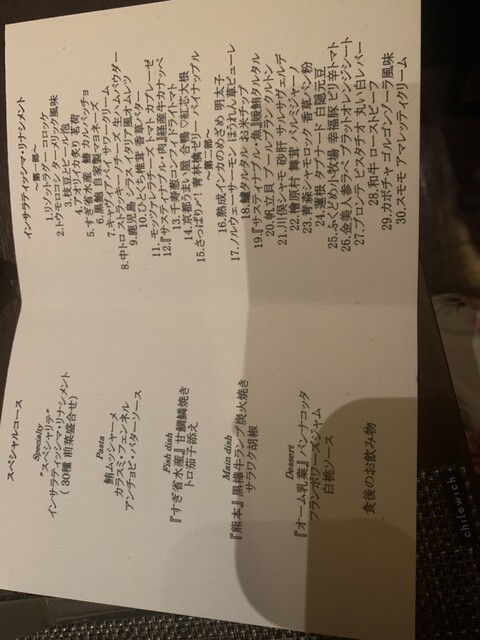 スペシャルコース
Specialty
"スペシャリテ"
インサラティッシマ・リナシメント
(30種 前菜盛合せ)
Pasta
鮪ムッシャーメ
カラスミ・フェンネル
アンチョビ・バターソース
Fish dish
『すぎ省水産』甘鯛鱗焼き
トロ茄子添え
Main dish
『熊本』黒樺牛ランプ炭火焼き
サラワク胡椒
Dessert
『オーム乳業』パンナコッタ
フランボワーズジャム
白桃ソース
食後のお飲み物
インサラティッシマ・リナシメント
～第一部～
1.リゾットランド コロッケ
2.トウモロコシ ターメリック風味
3.枝豆とビール泡
4.アオリイカ炙り 茗荷
5.すぎ省水産 鰆 カルパッチョ
6.黒鮑 自家製マヨネーズ
7.キャビア サワークリーム
8.中トロ ストラッキーノチーズ 生ハムパウダー
9.鹿児島 シラス イタリア風オムレツ
10.ひおうぎ椎実 香草バター
11.モッツァレラチーズ トマト カプレーゼ
12.『サスティナブル・肉』経産牛カナッペ
13.千寿葱コンフィ ドライトマト
14.京都うまい屋 合鴨 ♡紅芯大根
15.さっぱりン! 青林檎ゼリー・パイナップル
～第二部～
16.熟成インカのめざめ 明太子
17.ノルウェーサーモン ほうれん草ピューレ
18.鱧タルタル お米チップ
19.『サスティナブル・魚』鰻鮪タルタル
20.帆立貝 ブールブラン クルトン
21.川俣シャモ 砂肝 サルサヴェルデ
22.檜原村 舞茸 パルミジャーノ
23.青森シャモロック 香草パン粉
24.蓮根 タプナード 白隠元豆
25.ふくどめ小牧場 幸福豚 ピリ辛トマト
26.金美人参ラペ ブラッドオレンジシート
27.ブロンテ ピスタチオ 丸い白レバー
28.和牛 ローストビーフ
29.カボチャ ゴルゴンゾーラ風味
30.スモモ アマレッティクリーム
chilewich